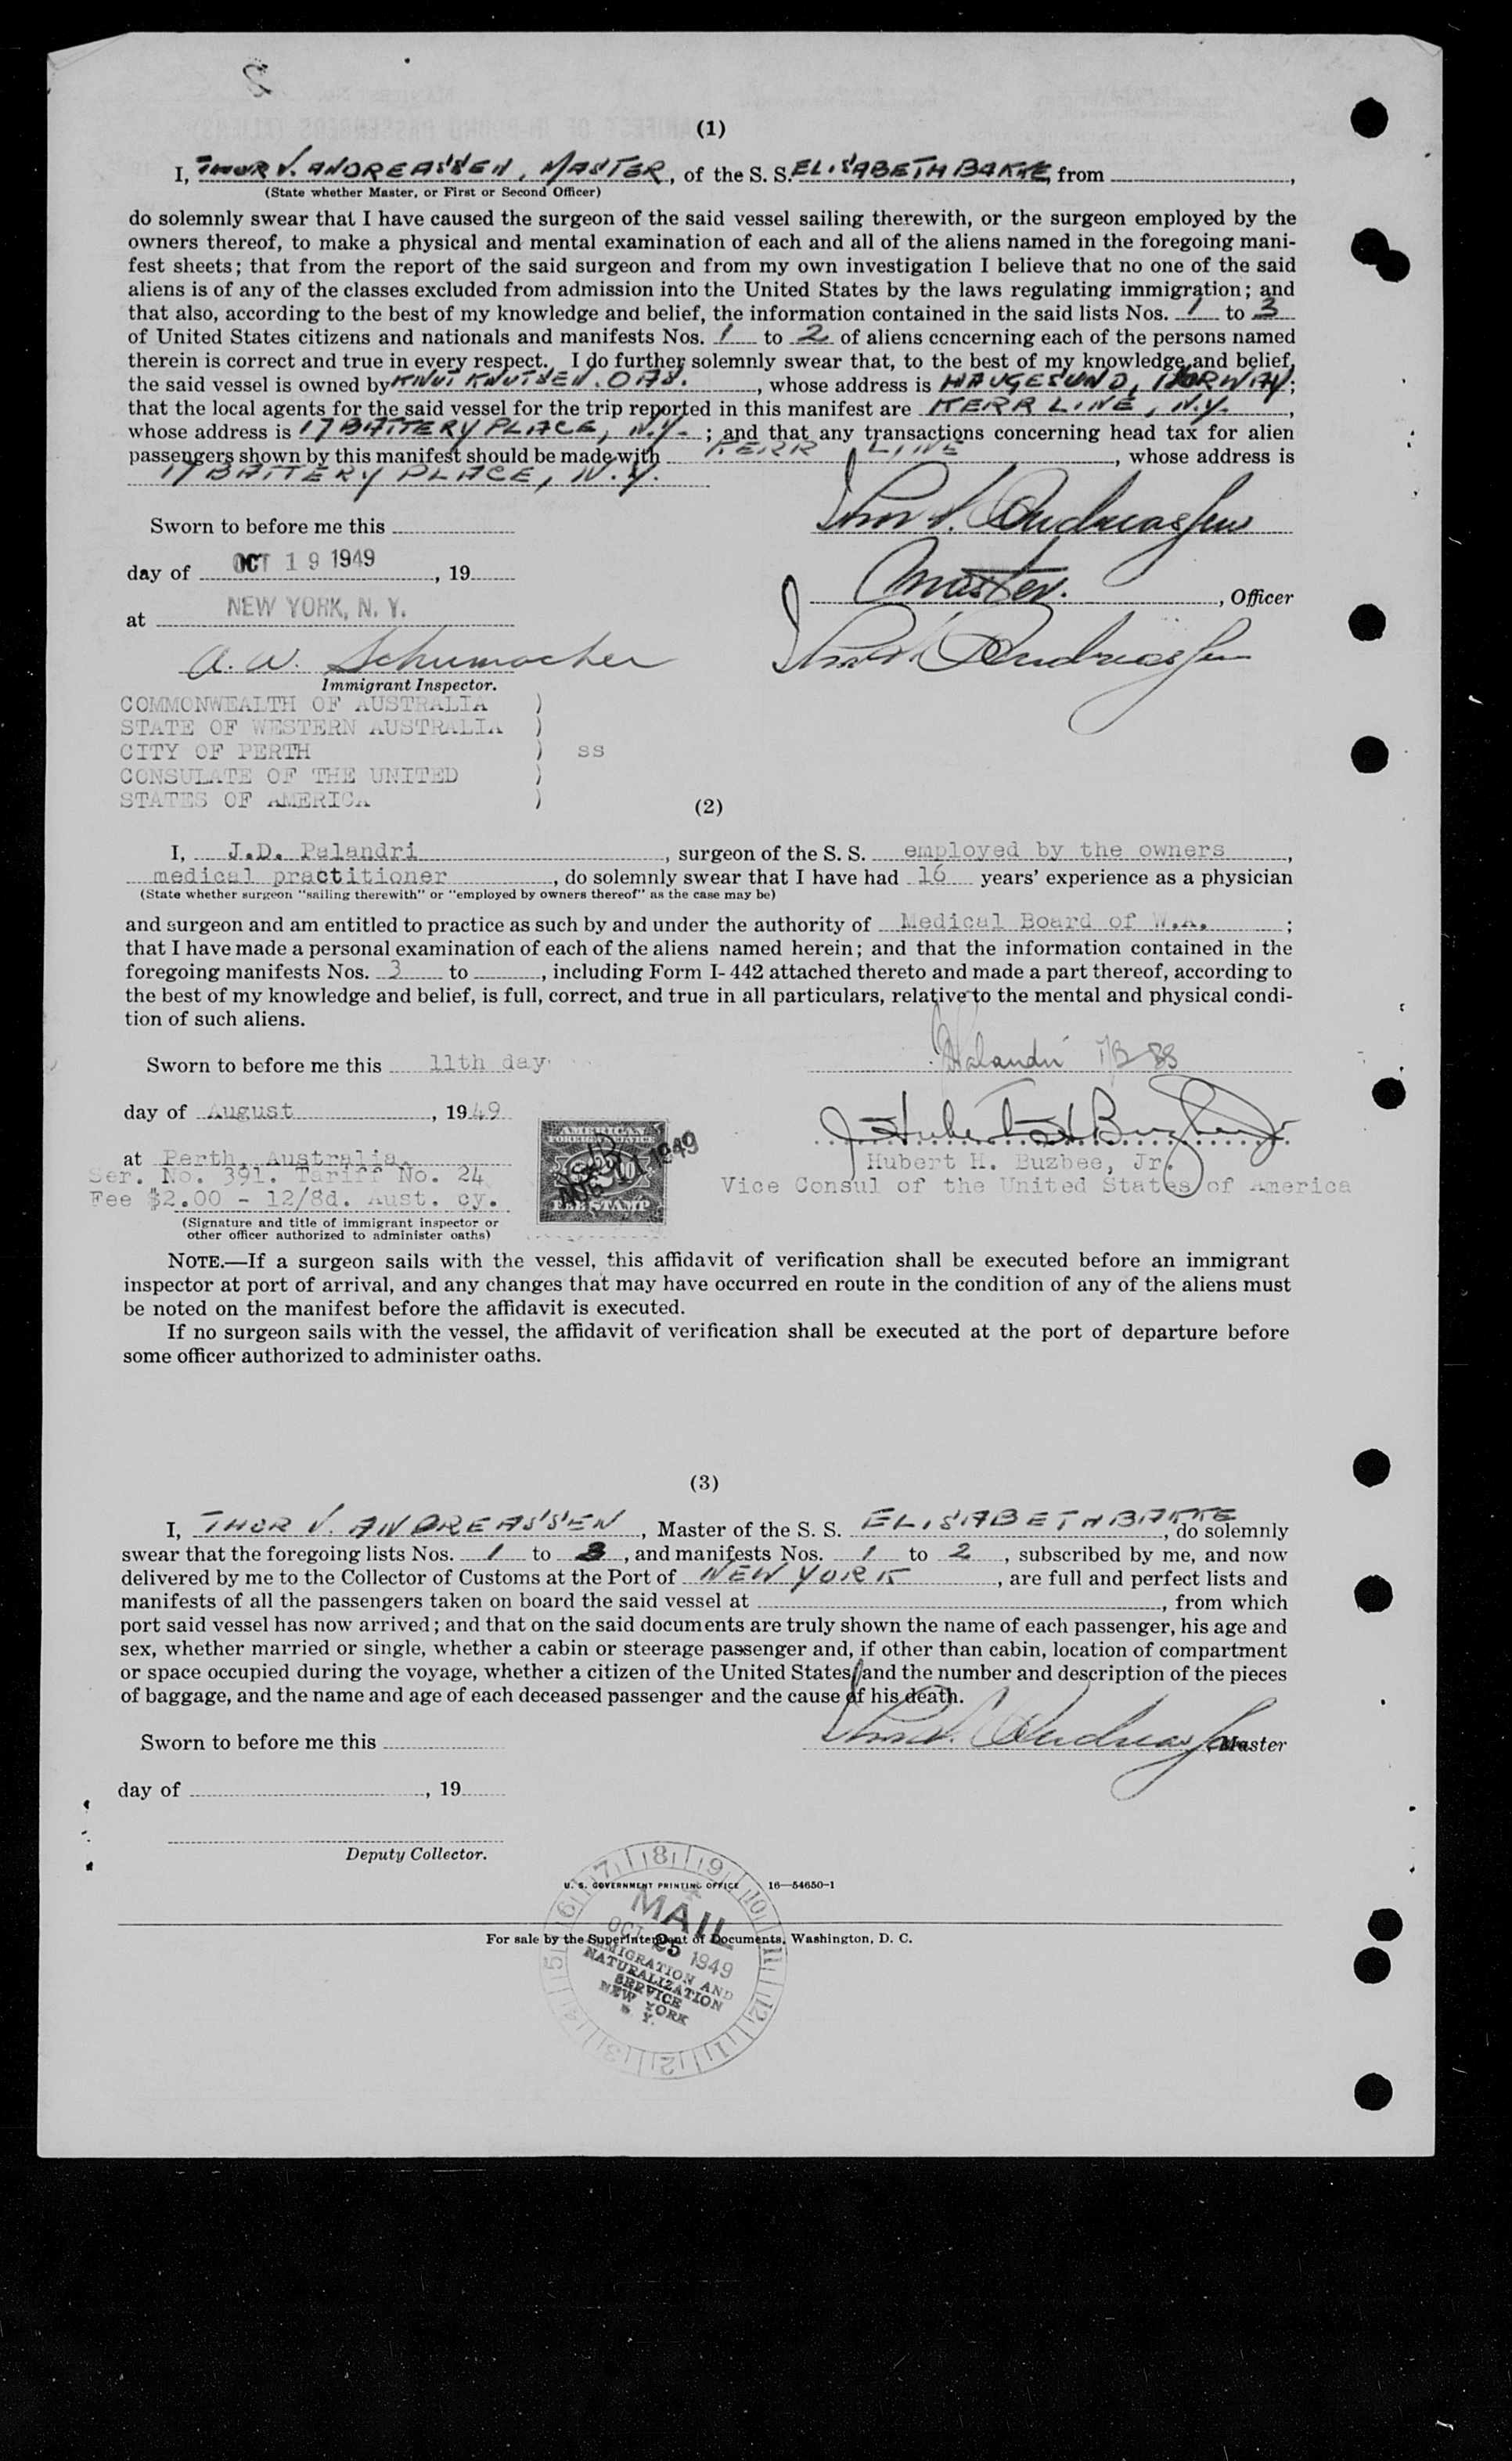 2
(1)
I, THOR V. ANDREASSEN, MASTER, of the S. S. ELISABETH BAKKE, from
(State whether Master, or First or Second Officer)
do solemnly swear that I have caused the surgeon of the said vessel sailing therewith, or the surgeon employed by the
owners thereof, to make a physical and mental examination of each and all of the aliens named in the foregoing mani-
fest sheets; that from the report of the said surgeon and from my own investigation I believe that no one of the said
aliens is of any of the classes excluded from admission into the United States by the laws regulating immigration; and
that also, according to the best of my knowledge and belief, the information contained in the said lists Nos. 1 to 3
of United States citizens and nationals and manifests Nos. 1 to 2 of aliens concerning each of the persons named
therein is correct and true in every respect. I do further solemnly swear that, to the best of my knowledge and belief,
the said vessel is owned by KNUT KNUTSEN. OAS., whose address is HAUGESUND, NORWAY;
that the local agents for the said vessel for the trip reported in this manifest are KERR LINE, N.Y.,
whose address is 17 BATTERY PLACE, N.Y. ; and that any transactions concerning head tax for alien
passengers shown by this manifest should be made with KERR LINE, whose address is
17 BATTERY PLACE, N.Y.
Sworn to before me this
Thor V. Andreassen
day of OCT 19 1949, 19
Master. , Officer
at NEW YORK, N. Y.
A. W. Schumacher
Thor V. Andreassen
Immigrant Inspector.
COMMONWEALTH OF AUSTRALIA )
STATE OF WESTERN AUSTRALIA )
CITY OF PERTH ) SS
CONSULATE OF THE UNITED )
STATES OF AMERICA )
(2)
I, J.D. Palandri, surgeon of the S. S. employed by the owners,
medical practitioner, do solemnly swear that I have had 16 years' experience as a physician
(State whether surgeon "sailing therewith" or "employed by owners thereof" as the case may be)
and surgeon and am entitled to practice as such by and under the authority of Medical Board of W.A. ;
that I have made a personal examination of each of the aliens named herein; and that the information contained in the
foregoing manifests Nos. 3 to , including Form I-442 attached thereto and made a part thereof, according to
the best of my knowledge and belief, is full, correct, and true in all particulars, relative to the mental and physical condi-
tion of such aliens.
Sworn to before me this 11th day
Palandri
day of August, 1949
at Perth, Australia.
Hubert H. Buzbee, Jr.
Ser. No. 391. Tariff No. 24
Vice Consul of the United States of America
Fee $2.00 - 12/8d. Aust. cy.
AMERICAN
FOREIGN SERVICE
AUG 11 1949
FEE STAMP
(Signature and title of immigrant inspector or
other officer authorized to administer oaths)
NOTE.—If a surgeon sails with the vessel, this affidavit of verification shall be executed before an immigrant
inspector at port of arrival, and any changes that may have occurred en route in the condition of any of the aliens must
be noted on the manifest before the affidavit is executed.
If no surgeon sails with the vessel, the affidavit of verification shall be executed at the port of departure before
some officer authorized to administer oaths.
(3)
I, THOR V. ANDREASSEN, Master of the S. S. ELISABETH BAKKE, do solemnly
swear that the foregoing lists Nos. 1 to 3, and manifests Nos. 1 to 2, subscribed by me, and now
delivered by me to the Collector of Customs at the Port of NEW YORK, are full and perfect lists and
manifests of all the passengers taken on board the said vessel at , from which
port said vessel has now arrived; and that on the said documents are truly shown the name of each passenger, his age and
sex, whether married or single, whether a cabin or steerage passenger and, if other than cabin, location of compartment
or space occupied during the voyage, whether a citizen of the United States, and the number and description of the pieces
of baggage, and the name and age of each deceased passenger and the cause of his death.
Sworn to before me this
Thor V. Andreassen, Master
day of , 19
Deputy Collector.
U. S. GOVERNMENT PRINTING OFFICE 16—54650-1
For sale by the Superintendent of Documents, Washington, D. C.
MAIL
OCT 25 1949
IMMIGRATION AND
NATURALIZATION
SERVICE
NEW YORK
N. Y.
1 2 3 4 5 6 7 8 9 10 11 12